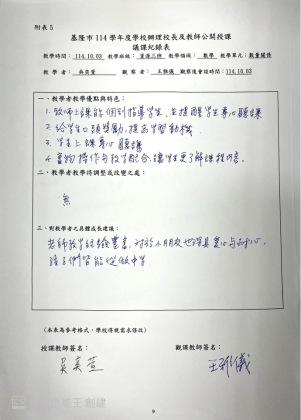 附表 5
基隆市 114 學年度學校辦理校長及教師公開授課
議課紀錄表
教學時間：114.10.03 教學班級：資源二班 教學領域：數學 教學單元：數量關係
教 學 者：吳奕萱 觀 察 者：王雅儀 觀察後會談時間：114.10.03
一、教學者教學優點與特色：
1. 教師上課能個別指導學生，並提醒學生專心聽課
2. 給學生口頭獎勵，提高學習動機
3. 學生上課專心聽講
4. 實物操作與教學配合，讓學生更了解課程內容。
二、教學者教學待調整或改變之處：
無
三、對教學者之具體成長建議：
老師教學經驗豐富，對於小朋友也很具愛心與耐心，
孩子們皆能從做中學。
(本表為參考格式，學校得視需求修改)
授課教師簽名： 觀課教師簽名：
吳奕萱 王雅儀
創建
9